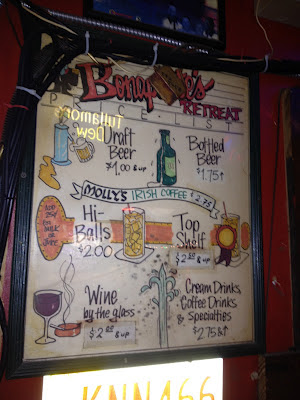 RETREAT
PRICE-LIST
Tullamore
Dew
Draft
Beer
$1.00 & up
Bottled
Beer
$1.75 ↑
MOLLY'S IRISH COFFEE $2.75
ADD
25¢
for
MILK or
JUICE
Hi-
Balls
$2.00
Top
Shelf
& up
Wine
by the glass
& up
Cream Drinks,
Coffee Drinks
& Specialties
$2.75 & ↑
KNN466